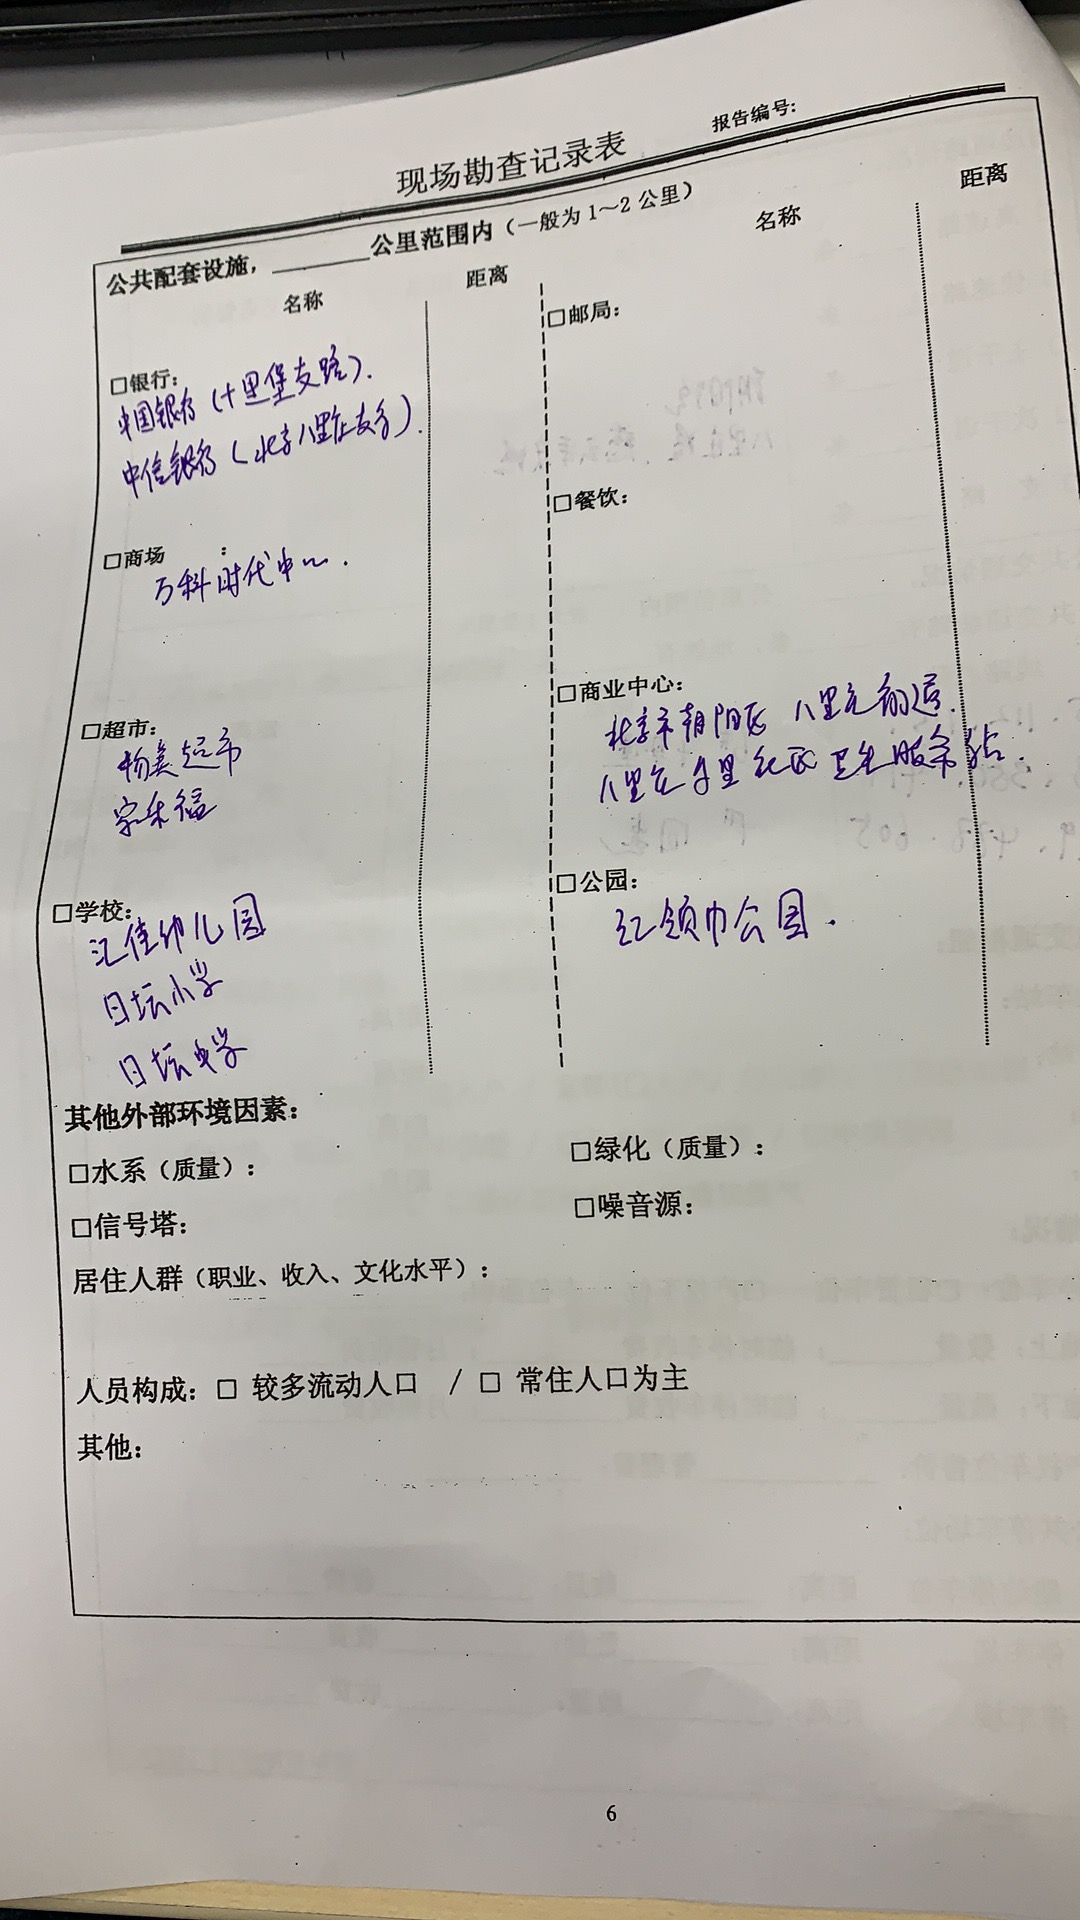 报告编号:
现场勘查记录表
公共配套设施,______公里范围内(一般为1~2公里)
名称 距离 名称 距离
□银行:
中国银行(十里堡支路).
中信银行(北京八里庄支行).
□商场 :
万科时代中心.
□超市:
物美超市
家乐福
□学校:
汇佳幼儿园
日坛小学
日坛中学
□邮局:
□餐饮:
□商业中心:
北京市朝阳区 八里庄街道.
八里庄 里社区卫生服务站.
□公园:
红领巾公园.
其他外部环境因素:
□水系(质量): □绿化(质量):
□信号塔: □噪音源:
居住人群(职业、收入、文化水平):
人员构成: □ 较多流动人口 / □ 常住人口为主
其他:
6